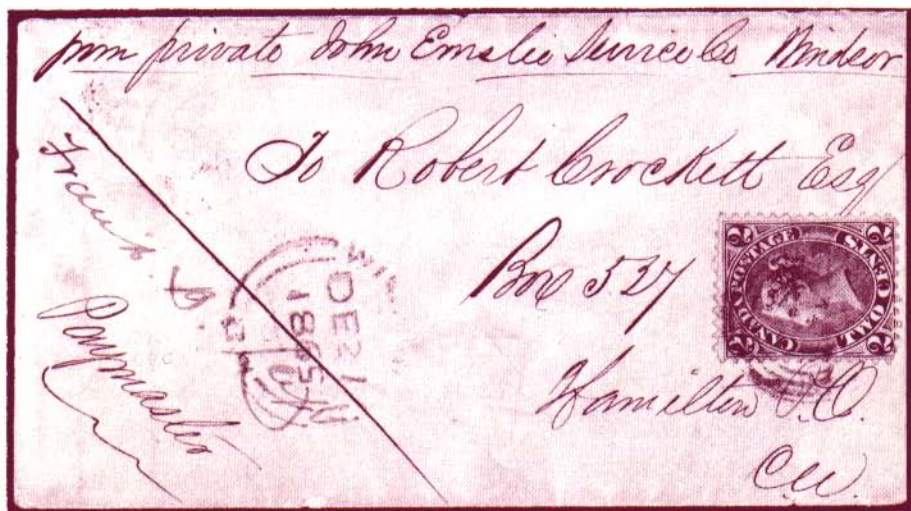 from private John Emslie Service Co Windsor
To Robert Crockett Esq
Box 527
Hamilton P.O.
C.W.
Frank
Paymaster
DE 1
1865
CANADA POSTAGE
TWO CENTS
2 2 2 2